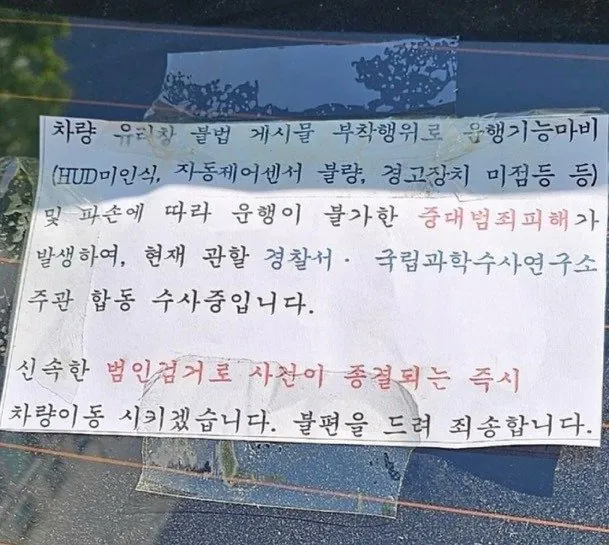 차량 유리창 불법 게시물 부착행위로 운행기능마비
(HUD미인식, 자동제어센서 불량, 경고장치 미점등 등)
및 파손에 따라 운행이 불가한 중대범죄피해가
발생하여, 현재 관할 경찰서· 국립과학수사연구소
주관 합동 수사중입니다.
신속한 범인검거로 사건이 종결되는 즉시
차량이동 시키겠습니다. 불편을 드려 죄송합니다.